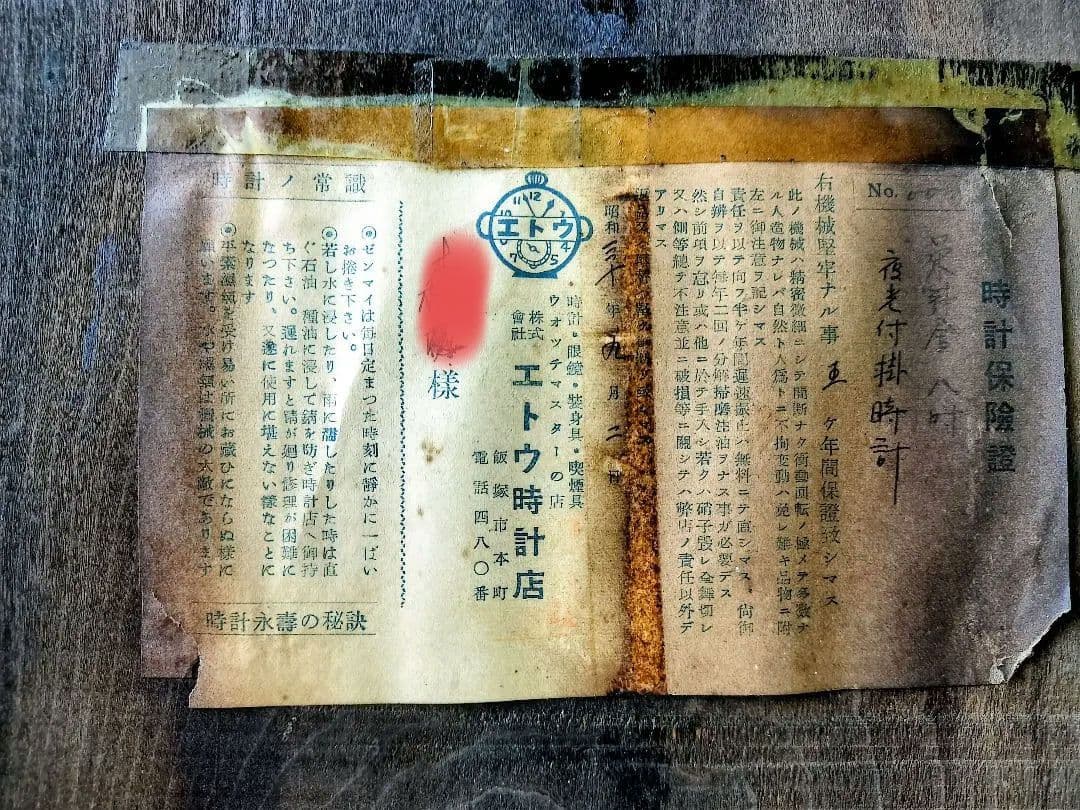 時計保險證
No.
八吋
夜光付掛時計
右機械堅牢ナル事 五 ケ年間保證致シマス
此ノ機械ハ精密微細ニシテ間斷ナク衝動回転ノ極メテ多数ナ
ル人造物ナレバ自然ト人爲トニ不拘変動ハ免レ難キ品物ニ附
左ニ御注意ヲ記シマス
責任ヲ以テ向フ半ケ年間遅速振止ハ無料ニテ直シマス、尚御
自辨ヲ以テ毎年二回ノ分解掃除注油ヲナス事ガ必要デス
然シ前項ヲ怠リ或ハ他ニ於テ手入シ若クハ硝子毀レ全舞切レ
又ハ側等總テ不注意並ニ破損等ニ關シテハ弊店ノ責任以外デ
アリマス
昭和三十年九月二日
エトウ
時計・眼鏡・裝身具・喫煙具
ウオッチマスターの店
株式會社 エトウ時計店
飯塚市本町
電話四八〇番
樣
時計ノ常識
◉ゼンマイは毎日定まつた時刻に靜かに一ぱい
お捲き下さい。
◉若し水に浸したり、雨に濡したりした時は直
ぐ石油、種油に浸して錆を防ぎ時計店へ御持
ち下さい。遲れますと錆が廻り修理が困難に
なつたり、又遂に使用に堪えない樣なことに
なります
◉平素濕氣を受け易い所にお藏ひにならぬ樣に
願います。水や濕氣は機械の大敵であります
時計永壽の秘訣